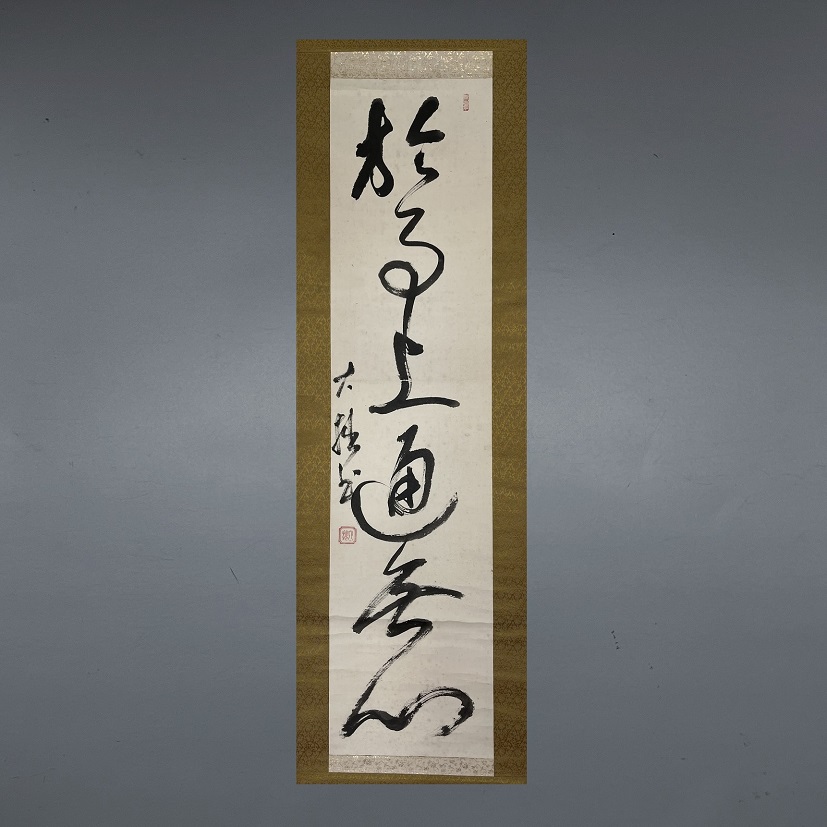 於事上通無心
大 書